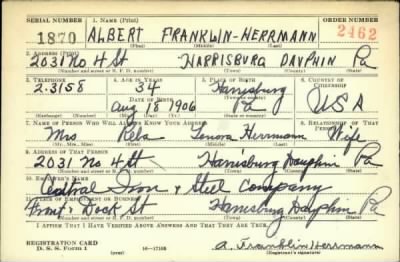 SERIAL NUMBER 1. NAME (Print) ORDER NUMBER
1870 ALBERT FRANKLIN-HERRMANN 2462
(First) (Middle) (Last)
2. ADDRESS (Print)
2031 No 4 St HARRISBURG DAUPHIN Pa
(Number and street or R. F. D. number) (Town) (County) (State)
3. TELEPHONE 4. AGE IN YEARS 5. PLACE OF BIRTH 6. COUNTRY OF CITIZENSHIP
2-3158 34 Harrisburg
DATE OF BIRTH (Town or county)
Aug 18 1906 Pa USA
(Exchange) (Number) (Mo.) (Day) (Yr.) (State or country)
7. NAME OF PERSON WHO WILL ALWAYS KNOW YOUR ADDRESS 8. RELATIONSHIP OF THAT PERSON
Mrs Reba Lenora Herrmann Wife
(Mr., Mrs., Miss) (First) (Middle) (Last)
9. ADDRESS OF THAT PERSON
2031 No 4 St Harrisburg Dauphin Pa
(Number and street or R. F. D. number) (Town) (County) (State)
10. EMPLOYER'S NAME
Central Iron & Steel Company
11. PLACE OF EMPLOYMENT OR BUSINESS
Front & Dock St Harrisburg Dauphin Pa
(Number and street or R. F. D. number) (Town) (County) (State)
I AFFIRM THAT I HAVE VERIFIED ABOVE ANSWERS AND THAT THEY ARE TRUE.
REGISTRATION CARD
D. S. S. Form 1 (over) 16—17105 A. Franklin Herrmann
(Registrant's signature)